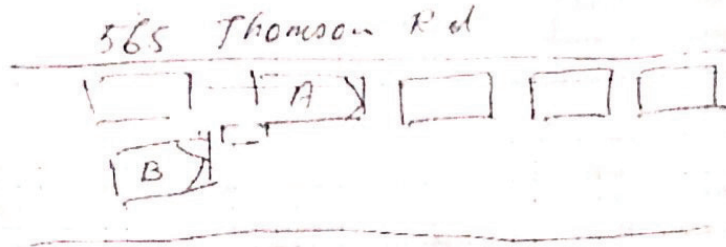 565 Thomson Rd
A
B